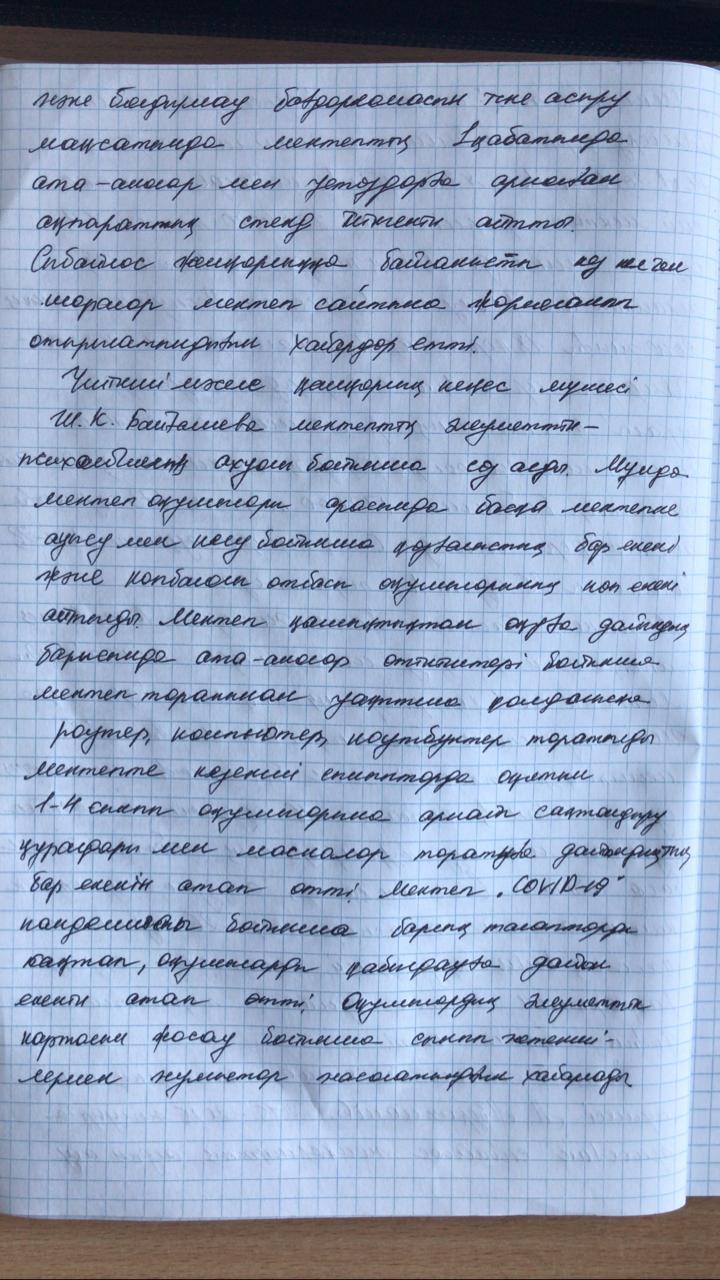 және бағдарламасын іске асыру
мақсатында мектептің 1қабатында
ата-аналар мен ұстаздарға арналған
ақпараттық стенд айтты.
Сыбайлас жемқорлыққа байланысты
шаралар мектеп сайтына жариялап
отырылатындығын хабардар етті.
мәселе қамқорлық кеңес мүшесі
Ш. К. мектептің әлеуметтік-
ахуал бойынша сөз алды. Мұнда
мектеп оқушылары арасында басқа мектепке
ауысу мен келу бойынша қозғалыстың бар екені
және көпбалалы отбасы оқушыларының көп екені
айтылды. Мектеп қашықтықтан оқуға дайындық
барысында ата-аналар өтініштері бойынша
мектеп тарапынан уақытша қолданысқа
роутер, компьютер, ноутбуктер таратылды
мектепте кезекші сыныптарда оқитын
1-4 сынып оқушыларына арнайы сақтандыру
құралдары мен маскалар таратуға дайындықтың
бар екенін атап өтті. Мектеп "COVID-19"
пандемиясы бойынша барлық талаптарды
сақтап, оқушыларды қабылдауға дайын
екенін атап өтті. Оқушылардың әлеуметтік
картасын жасау бойынша сынып жетекші-
лермен жұмыстар жасалатындығын хабарлады